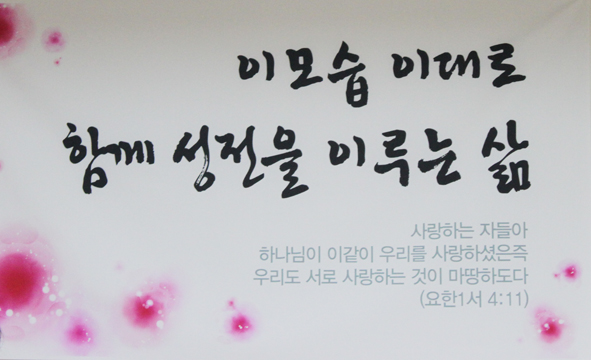 이모습 이대로
함께 성전을 이루는 삶
사랑하는 자들아
하나님이 이같이 우리를 사랑하셨은즉
우리도 서로 사랑하는 것이 마땅하도다
(요한1서 4:11)